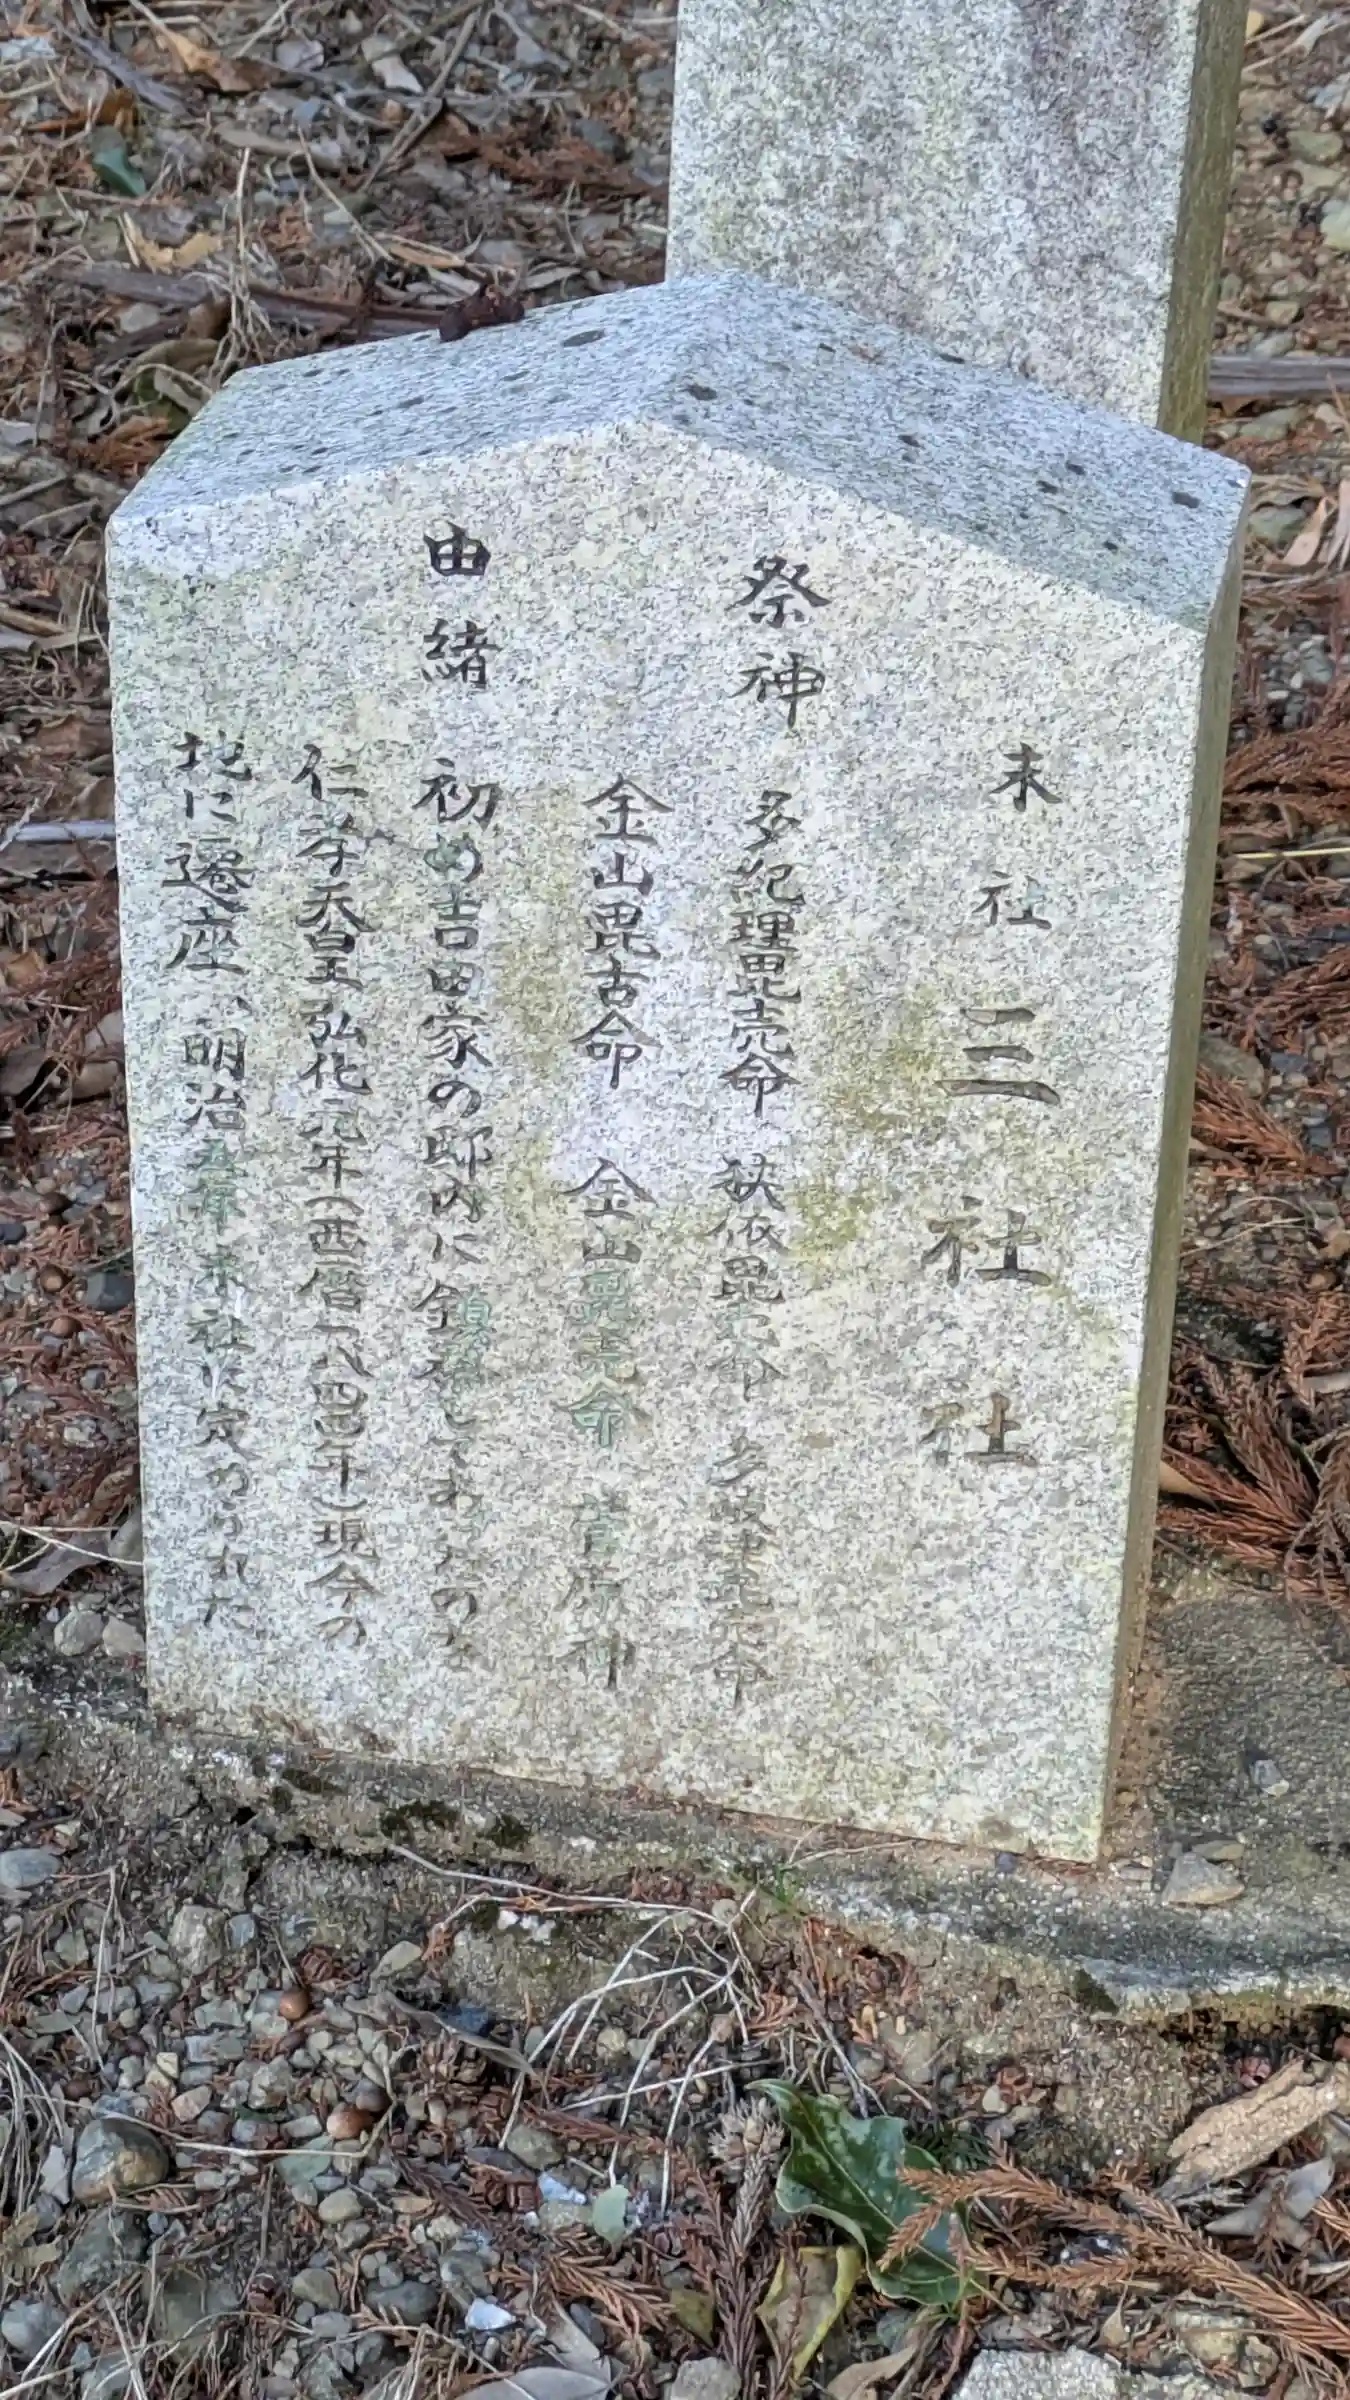 末社 三社社
祭神 多紀理毘売命 狭依毘売命 多岐津毘売命
金山毘古命 金山毘売命 菅原神
由緒 初め吉田家の邸内に全員祀してあったのを
仁孝天皇弘化元年(西暦一八四四年)現今の
地に遷座、明治五年末社に定められた